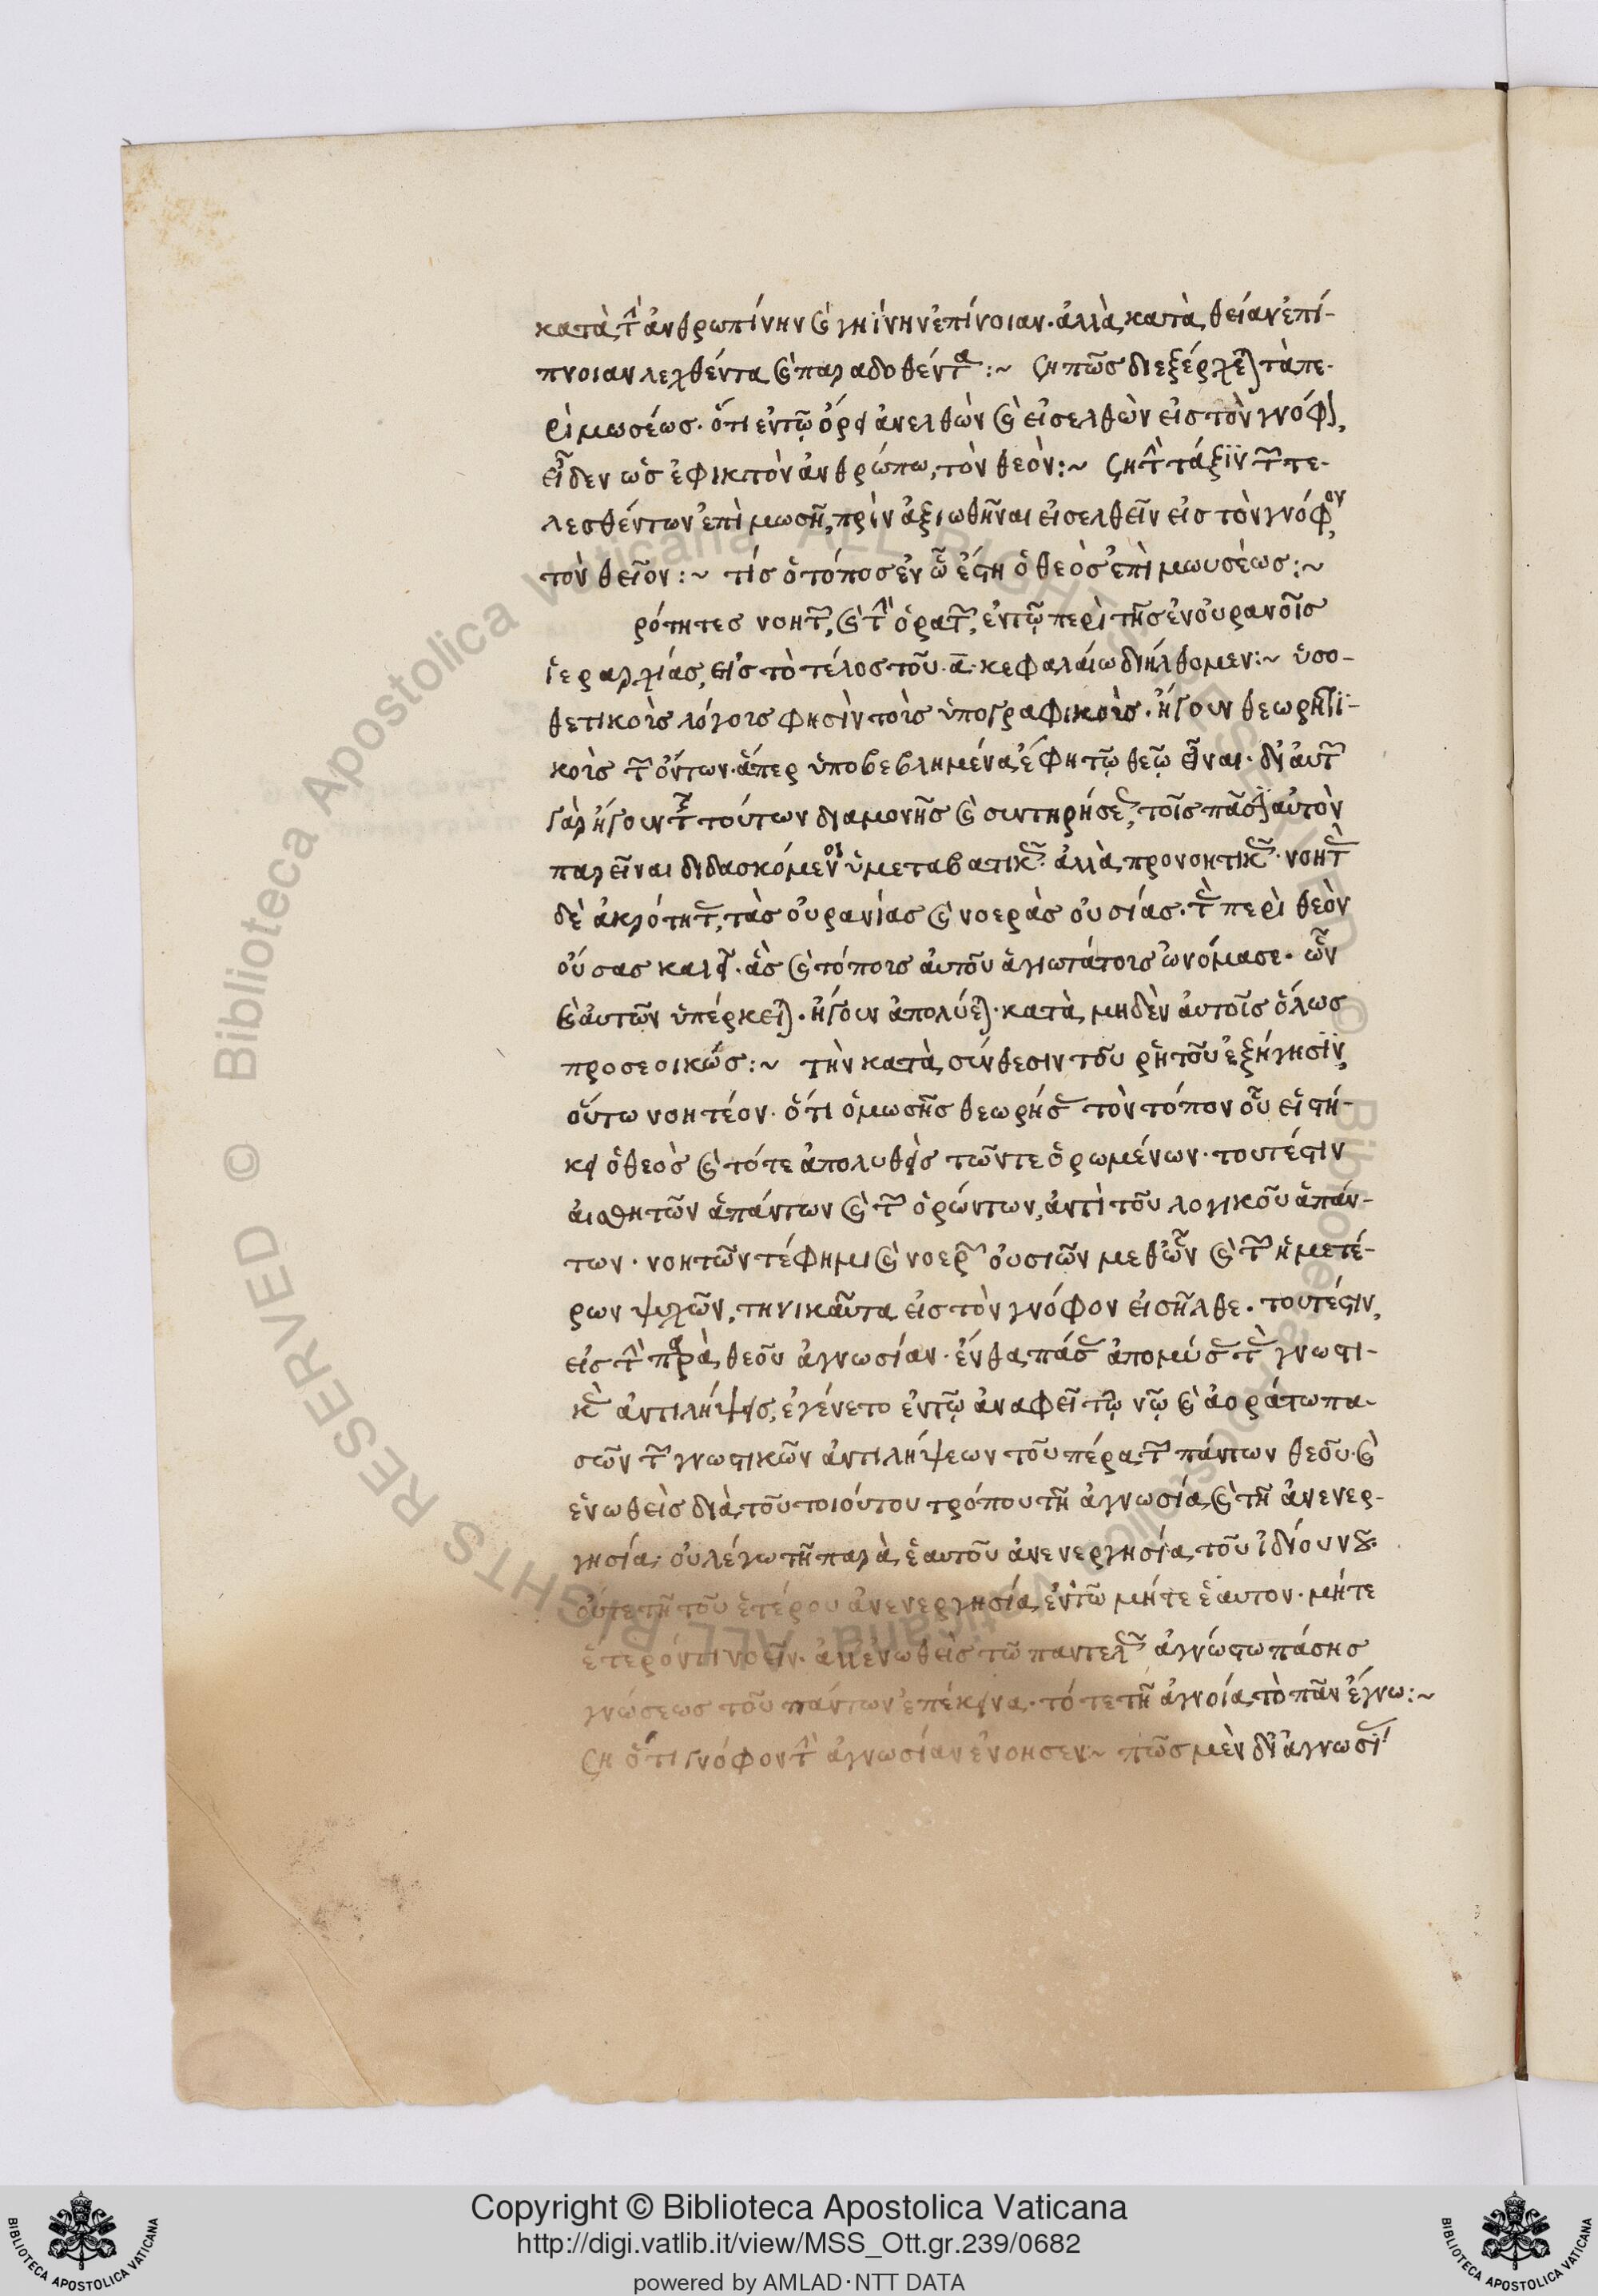 κατὰ τὴν ἀνθρωπίνην καὶ γηΐνην ἐπίνοιαν· ἀλλὰ κατὰ θείαν ἐπί-
πνοιαν λεχθέντα καὶ παραδοθέντα :~ ζη πῶς διεξέρχεται τὰ πε-
ρὶ μωσέως· ὅτι ἐν τῷ ὄρει ἀνελθὼν καὶ εἰσελθὼν εἰς τὸν γνόφον,
εἶδεν ὡς ἐφικτὸν ἀνθρώπω, τὸν θεόν :~ ζη τὴν τάξϊν τῶν τε-
λεσθέντων ἐπὶ μωσῆ, πρὶν ἀξιωθῆναι εἰσελθεῖν εἰς τὸν γνόφον,
τὸν θεῖον :~ τίς ὁ τόπος ἐν ὧ ἔστη ὁ θεὸς ἐπὶ μωυσέως :~
ρότητες νοητῶν, καὶ τὴν ὁρατῶν, ἐν τῷ περὶ τῆς ἐν οὐρανοῖς
ἱεραρχίας, εἰς τὸ τέλος τοῦ α κεφαλαίω διήλθομεν :~ ὑπο-
θετικοὶς λόγοις φησὶν τοὶς ὑπογραφικοὶς· ἤγουν θεωρητϊ-
κοὶς τῶν ὄντων· ἅπερ ὑποβεβλημένα ἔφη τῷ θεῷ εἶναι· δι' αὐτῶν
γὰρ ἤγουν τῆς τούτων διαμονῆς καὶ συντηρήσεως, τοῖς πᾶσιν αὐτὸν
παρεῖναι διδασκόμενοι οὐ μεταβατικῶς ἀλλὰ προνοητικῶς· νοητὰς
δὲ ἀκρότητας, τὰς οὐρανίας καὶ νοερὰς οὐσίας· τὰς περὶ θεὸν
οὔσας καλεῖ· ἃς καὶ τόποις αὐτοῦ ἁγιωτάτοις ὠνόμασε· ὧν
καὶ αὐτῶν ὑπέρκειται· ἤγουν ἀπολύεται· κατὰ μηδὲν αὐτοῖς ὅλως
προσεοικώς :~ τὴν κατὰ σύνθεσιν τοῦ ρητοῦ ἐξήγησϊν,
οὕτω νοητέον· ὅτι ὁ μωσῆς θεωρήσας τὸν τόπον οὗ εἱστή-
κει ὁ θεὸς καὶ τότε ἀπολυθεὶς τῶν τε ὁρωμένων· τουτέστιν
αἰσθητῶν ἁπάντων καὶ τῶν ὁρώντων, ἀντὶ τοῦ λογικοῦ ἁπάν-
των· νοητῶν τέ φημι καὶ νοερῶν οὐσιῶν μεθ' ὧν καὶ τῶν ἡμετέ-
ρων ψυχῶν, τηνικαῦτα εἰς τὸν γνόφον εἰσῆλθε· τουτέστιν,
εἰς τὴν παρὰ θεοῦ ἀγνωσίαν· ἔνθα πάσας ἀπομύσας τὰς γνωστι-
κὰς ἀντιλήψεις, ἐγένετο ἐν τῷ ἀναφεῖ τῷ νῷ καὶ ἀοράτω πα-
σῶν τῶν γνωστικῶν ἀντιλήψεων τοῦ πέρα τῶν πάντων θεοῦ· καὶ
ἑνωθεὶς διὰ τοῦ τοιούτου τρόπου τῇ ἀγνωσία καὶ τῇ ἀνενερ-
γησία, οὐ λέγω τῇ παρὰ ἑαυτοῦ ἀνενεργησία τοῦ ἰδίου νοῦ·
οὔτε τῇ τοῦ ἑτέρου ἀνενεργησία ἐν τῷ μήτε ἑαυτον· μήτε
ἕτερόν τι νοεῖν· ἀλλ' ἑνωθεὶς τῶ παντελῶς ἀγνώστω πάσης
γνώσεως τοῦ πάντων ἐπέκεινα· τότε τῇ ἀγνοία τὸ πᾶν ἔγνω :~
ζη ὅτι γνόφον τὴν ἀγνωσίαν ἐνόησεν :~ πῶς μὲν δι' ἀγνωσίας
Copyright © Biblioteca Apostolica Vaticana
http://digi.vatlib.it/view/MSS_Ott.gr.239/0682
powered by AMLAD·NTT DATA
BIBLIOTECA APOSTOLICA VATICANA
BIBLIOTECA APOSTOLICA VATICANA
© Biblioteca Apostolica Vaticana ALL RIGHTS RESERVED
© Biblioteca Apostolica Vaticana ALL RIGHTS RESERVED